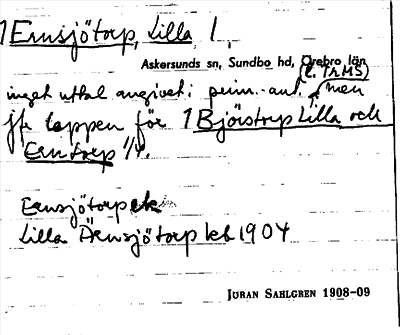 1 Ernsjötorp, Lilla 1,
Askersunds sn, Sundbo hd, Örebro län
(l. TAMS)
inget uttal angivet i prim.-ant. men
jfr lappen för 1 Björstorp Lilla och
Erntorp 1/4.
Ernsjötorp ek
Lilla Ärnsjötorp kb 1904
JÖRAN SAHLGREN 1908-09